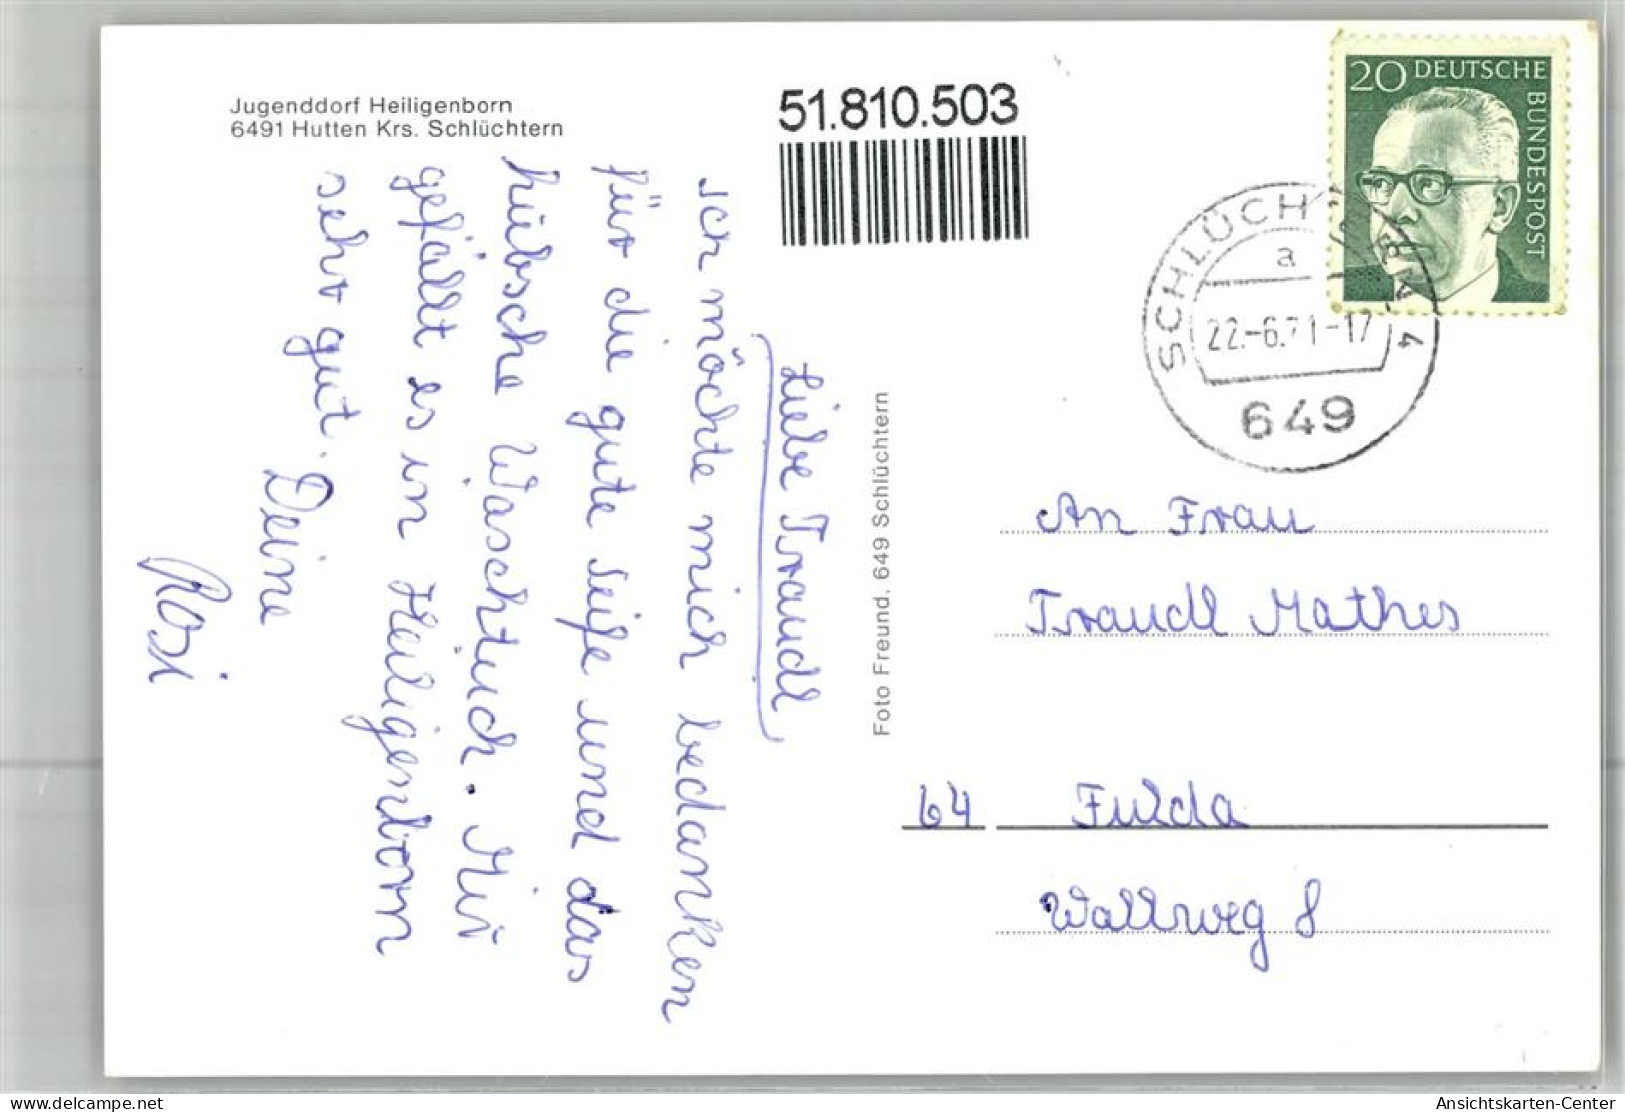 Jugenddorf Heiligenborn
6491 Hutten Krs. Schlüchtern
51.810.503
20 DEUTSCHE
BUNDESPOST
SCHLÜCHT
a
22.-6.71-17
649
Liebe Traudl,
ich möchte mich bedanken
für die gute Seife und das
hübsche Waschtuch. Mir
gefällt es in Heiligenborn
sehr gut.
Deine
Rosi
Foto Freund, 649 Schlüchtern
An Frau
Traudl Mathes
64 Fulda
Wallweg 8
www.ansichtskarten-center.de
Ansichtskarten-Center